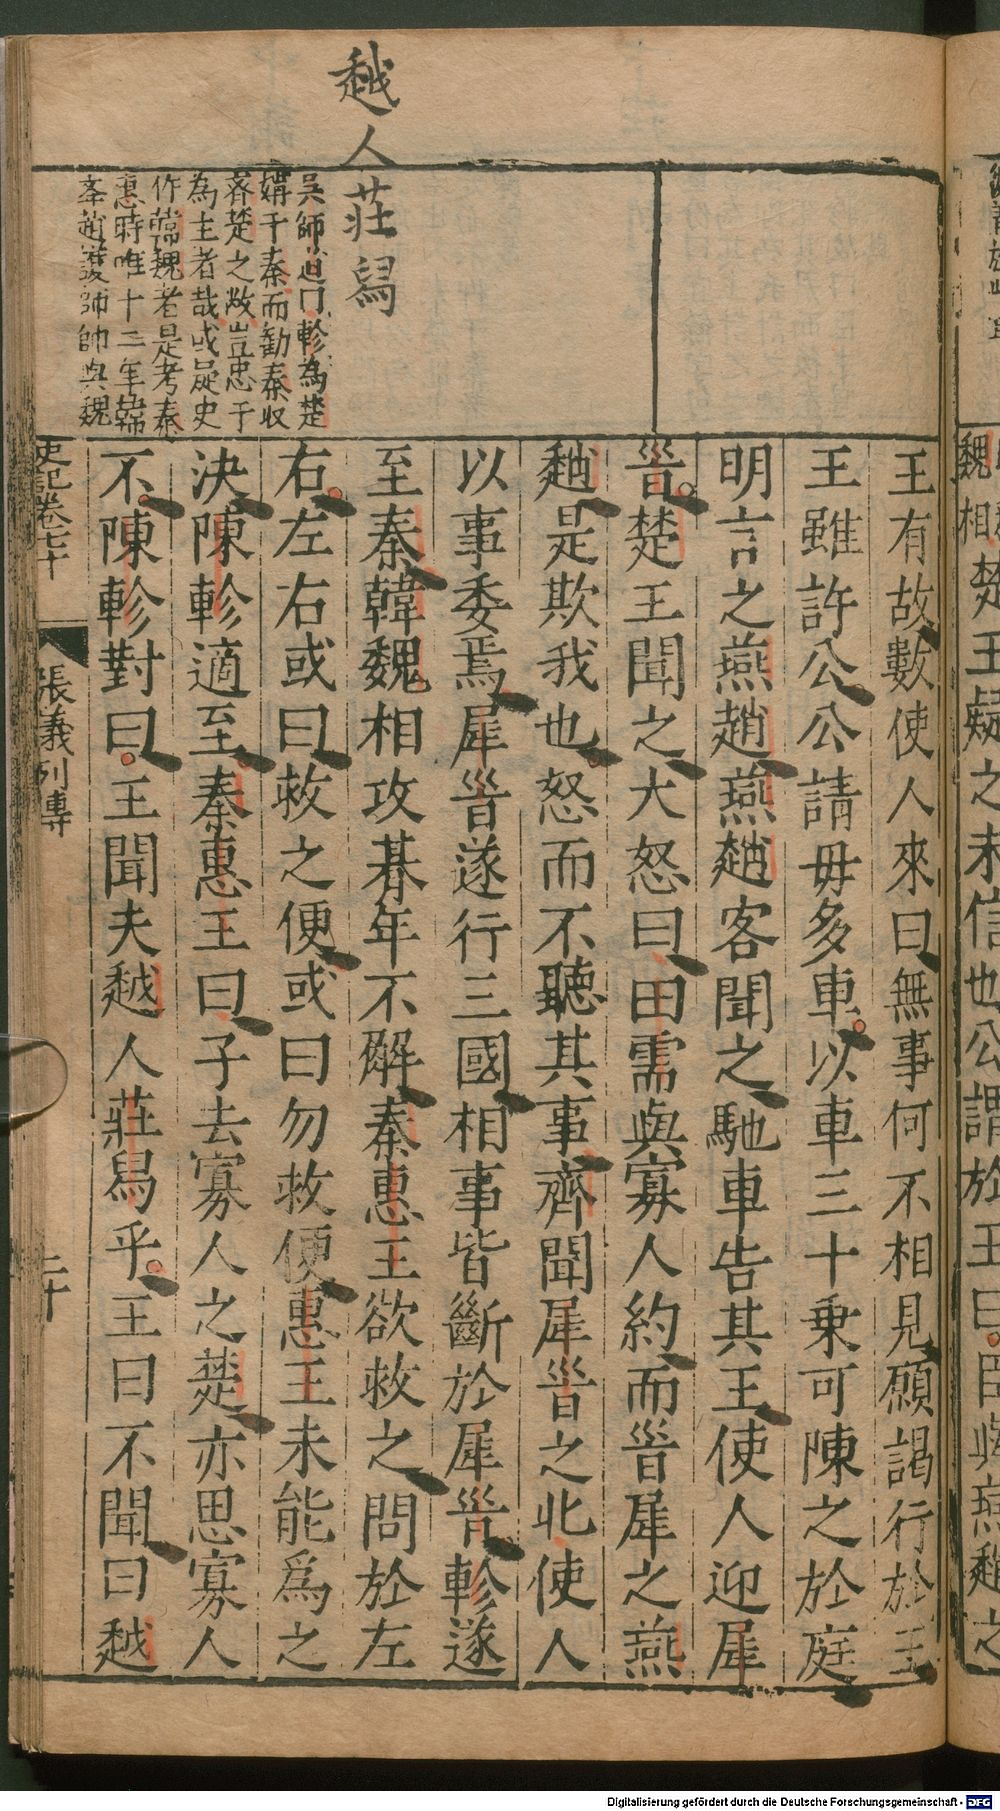 魏相楚王疑之未信也公謂於王曰臣與燕趙之
越人莊舄
吳師道曰軫為楚
媾于秦而勸秦收
齊楚之敝豈忠于
為主者哉或疑史
作韓魏者是考秦
惠時唯十三年韓
舉趙護師師與魏
王有故數使人來曰無事何不相見願謁行於王
王雖許公公請毋多車以車三十乗可陳之於庭
明言之燕趙燕趙客聞之馳車告其王使人迎犀
首楚王聞之大怒曰田需與寡人約而首犀之燕
趙是欺我也怒而不聽其事齊聞犀首之北使人
以事委焉犀首遂行三國相事皆斷於犀首軫遂
至秦韓魏相攻朞年不解秦惠王欲救之問於左
右左右或曰救之便或曰勿救便惠王未能爲之
決陳軫適至秦惠王曰子去寡人之楚亦思寡人
不陳軫對曰王聞夫越人莊舄乎王曰不聞曰越
史記卷七十
張義列傳
二十
Digitalisierung gefördert durch die Deutsche Forschungsgemeinschaft - DFG